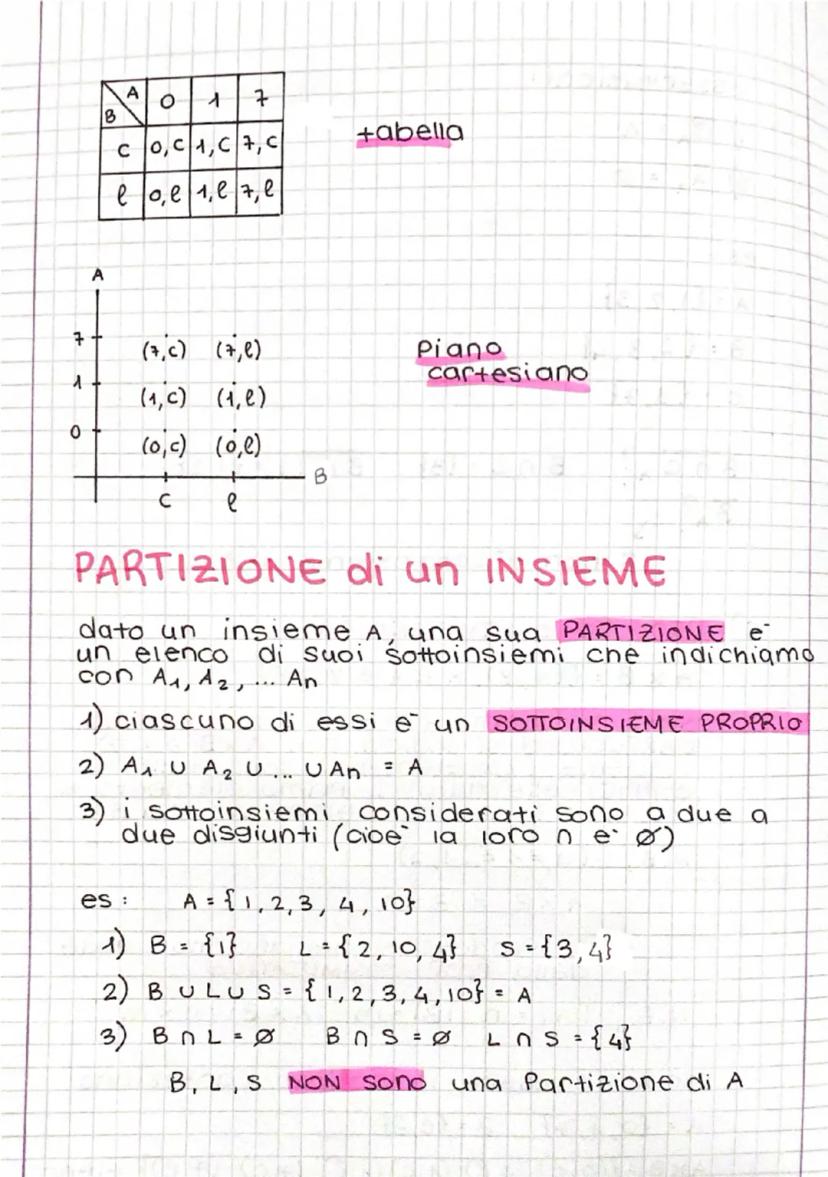 A
B
0 1 7
c 0,c 1,c 7,c
l 0,l 1,l 7,l
tabella
A
7 (7,c) (7,l)
1 (1,c) (1,l)
0 (0,c) (0,l)
B
c l
Piano
cartesiano
PARTIZIONE di un INSIEME
dato un insieme A, una sua PARTIZIONE e-
un elenco di suoi sottoinsiemi che indichiamo
con A₁, A₂, ... An
1) ciascuno di essi e- un SOTTOINSIEME PROPRIO
2) A₁ ∪ A₂ ∪ ... ∪ An = A
3) i sottoinsiemi considerati sono a due a
due disgiunti (cioe- la loro ∩ e- ∅)
es: A = {1,2,3, 4, 10}
1) B = {1} L = {2, 10, 4} S = {3,4}
2) B ∪ L ∪ S = {1,2,3,4,10} = A
3) B ∩ L = ∅ B ∩ S = ∅ L ∩ S = {4}
B, L, S NON sono una Partizione di A